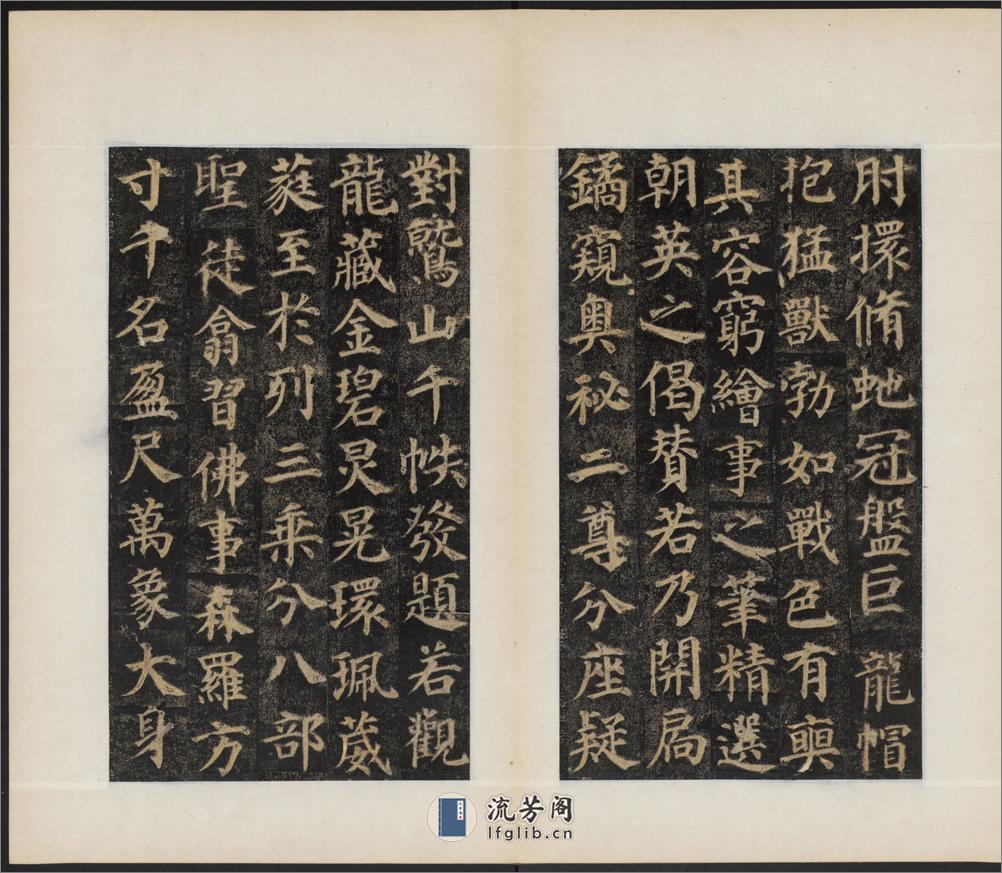 肘擐脩虵冠盤巨龍帽
抱猛獸勃如戰色有奭
其容窮繪事之筆精選
朝英之偈賛若乃開扄
鐍窺奥祕二尊分座疑
對鷲山千帙發題若觀
龍藏金碧炅晃環珮葳
蕤至於列三乘分八部
聖徒翕習佛事森羅方
寸千名盈尺萬象大身
流芳阁
lfglib.cn